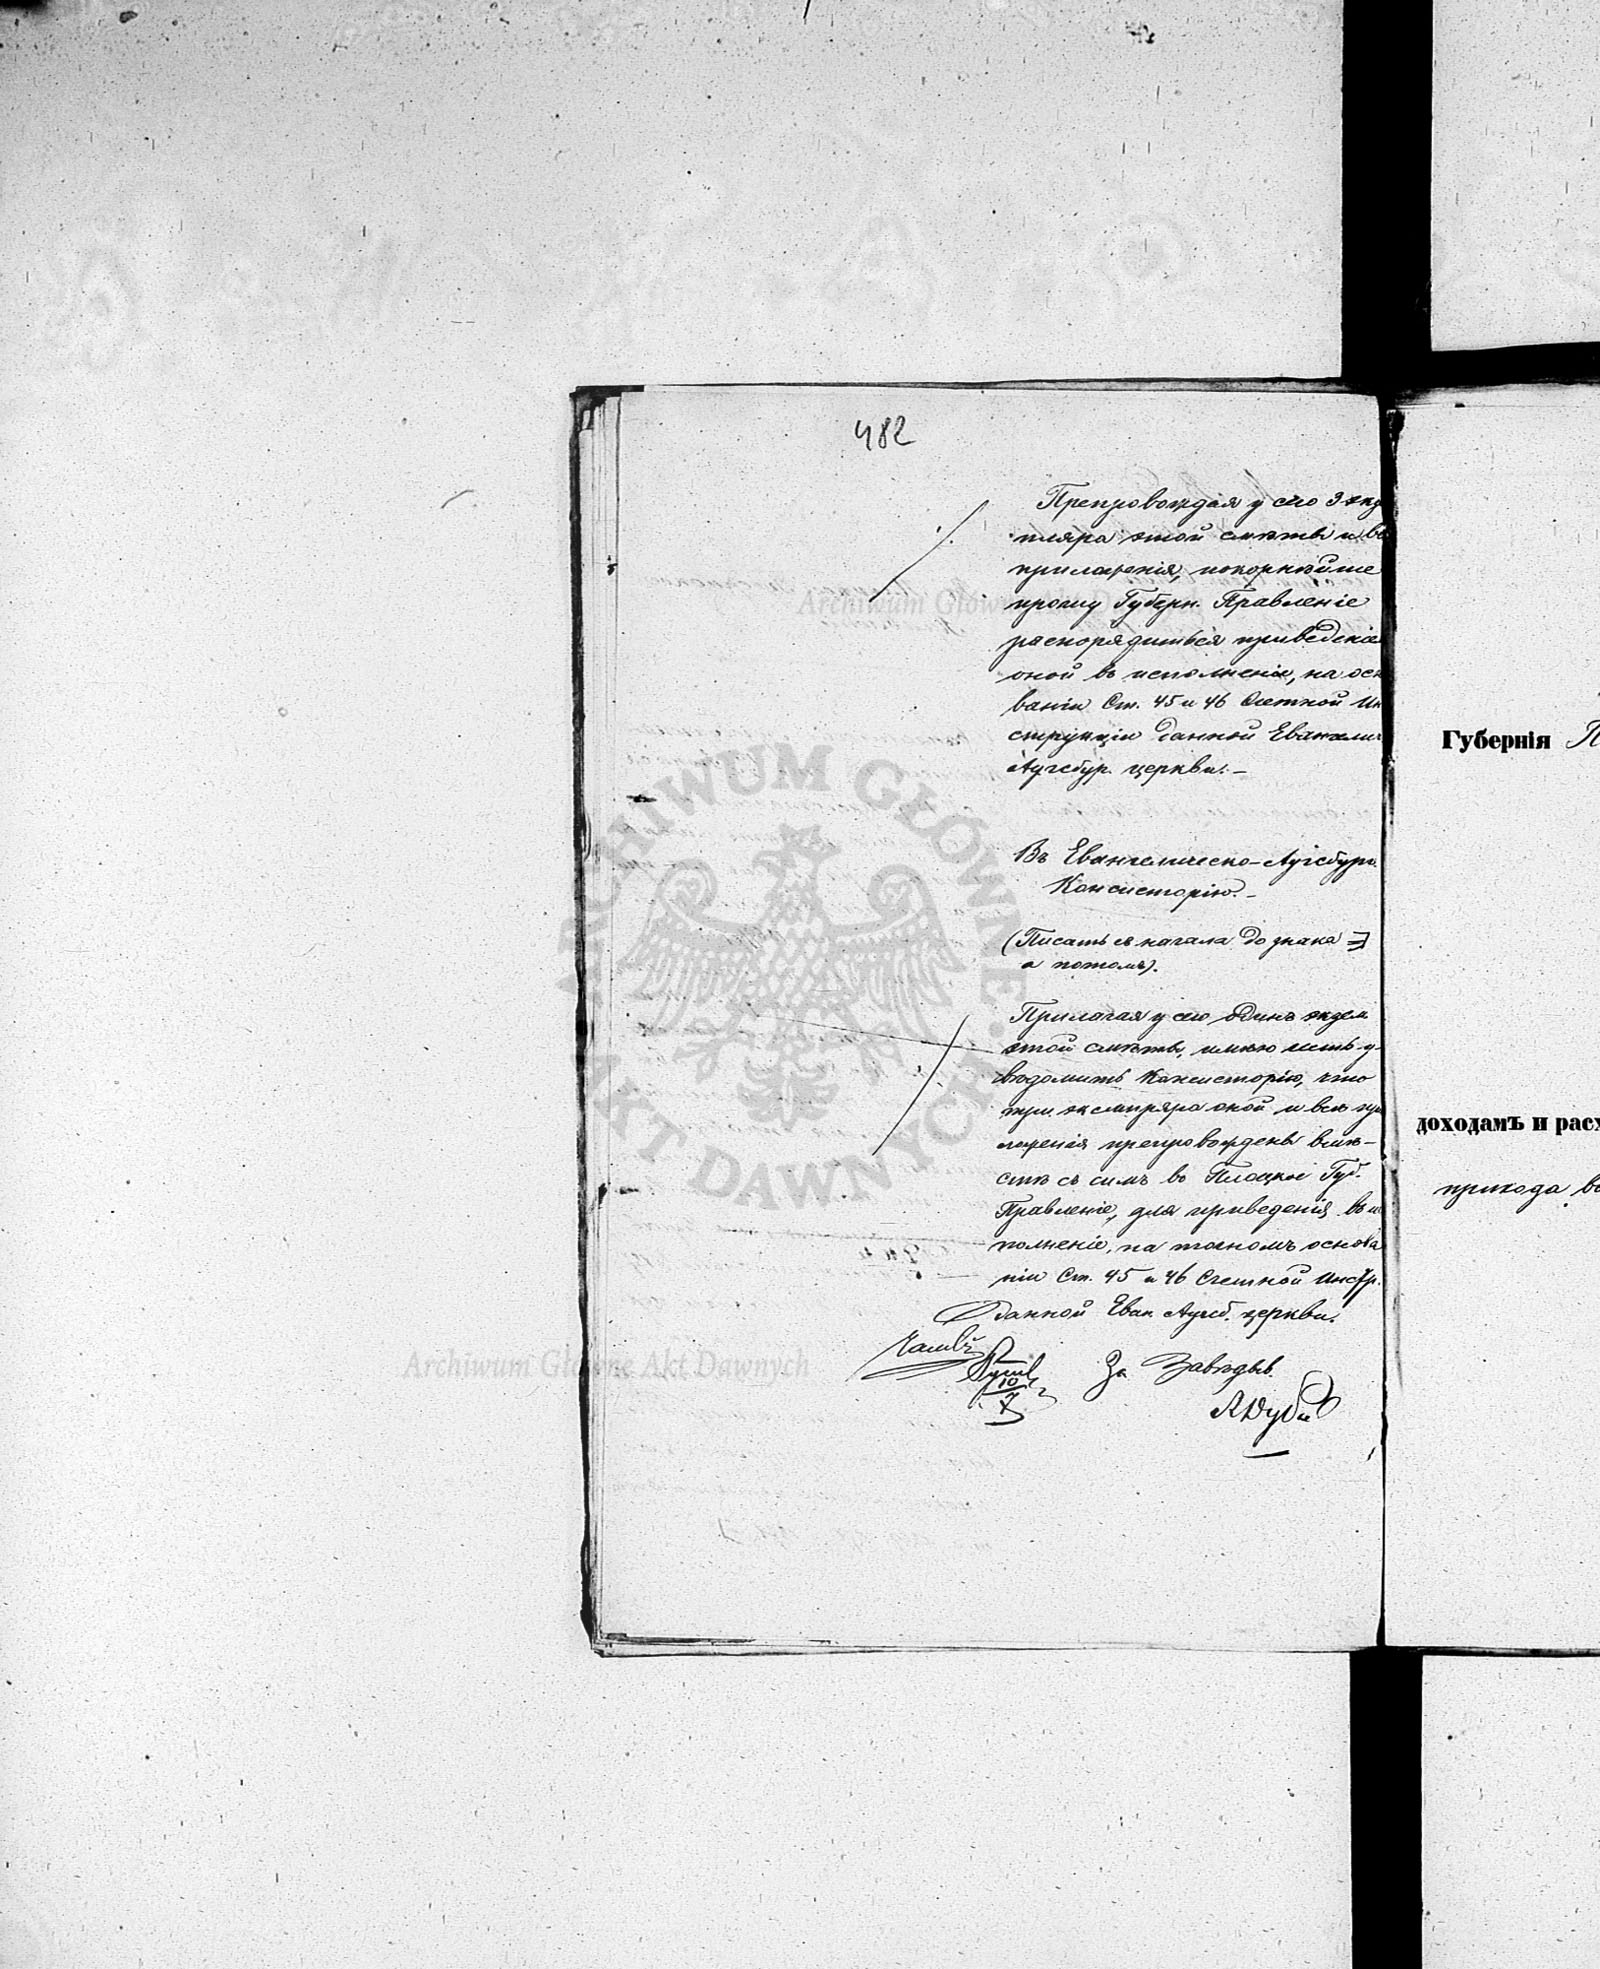 482
Препровождая у сего 3 экзе
мпляра этой сметы и вс
приложенія, покорнейше
прошу Губерн. Правленіе
распорядиться приведеніе
оной въ исполненіе, на осн
ваніи Ст. 45 и 46 Счетной Ин
струкціи данной Евангели
Аугсбур. церкви. —
Въ Евангелическо-Аугсбург.
Консисторію. —
(Писать съ начала до знака =]
а потомъ).
Прилагая у сего одинъ экзем
этой сметы, имею честь у-
ведомить Консисторію, что
три экземпляра оной и все при
ложенія препровождены вме-
сте съ симъ въ Плоцкое Губ.
Правленіе, для приведенія въ ис
полненіе, на точномъ основа
ніи Ст. 45 и 46 Счетной Инстр.
данной Еван. Аугсб. церкви.
За Заведыв.
10
7
Губернія П
доходамъ и расх
прихода въ
ARCHIWUM GŁÓWNE AKT DAWNYCH
Archiwum Główne Akt Dawnych
Archiwum Główne Akt Dawnych